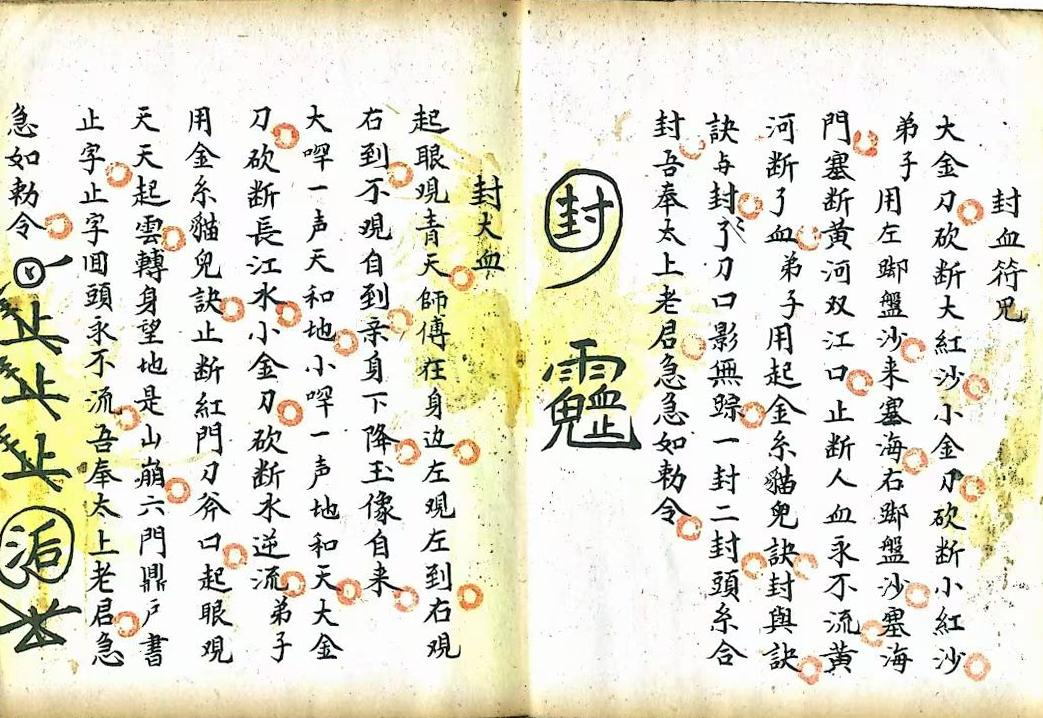 封血符咒
大金刀砍断大紅沙小金刀砍断小紅沙
弟子用左脚盤沙来塞海右脚盤沙塞海
門塞断黄河双江口止断人血永不流黄
河断了血弟子用起金糸貓兒訣封與訣
訣与封了刀口影無踪一封二封頭糸合
封吾奉太上老君急急如勅令
封
封大血
起眼观青天師傅在身边左观左到右观
右到不观自到亲身下降玉像自来
大喝一声天和地小喝一声地和天大金
刀砍断長江水小金刀砍断水逆流弟子
用金糸貓兒訣止断紅門刀斧口起眼观
天天起雲轉身望地是山崩六門鼎户書
止字止字回頭永不流吾奉太上老君急
急如勅令
止止止